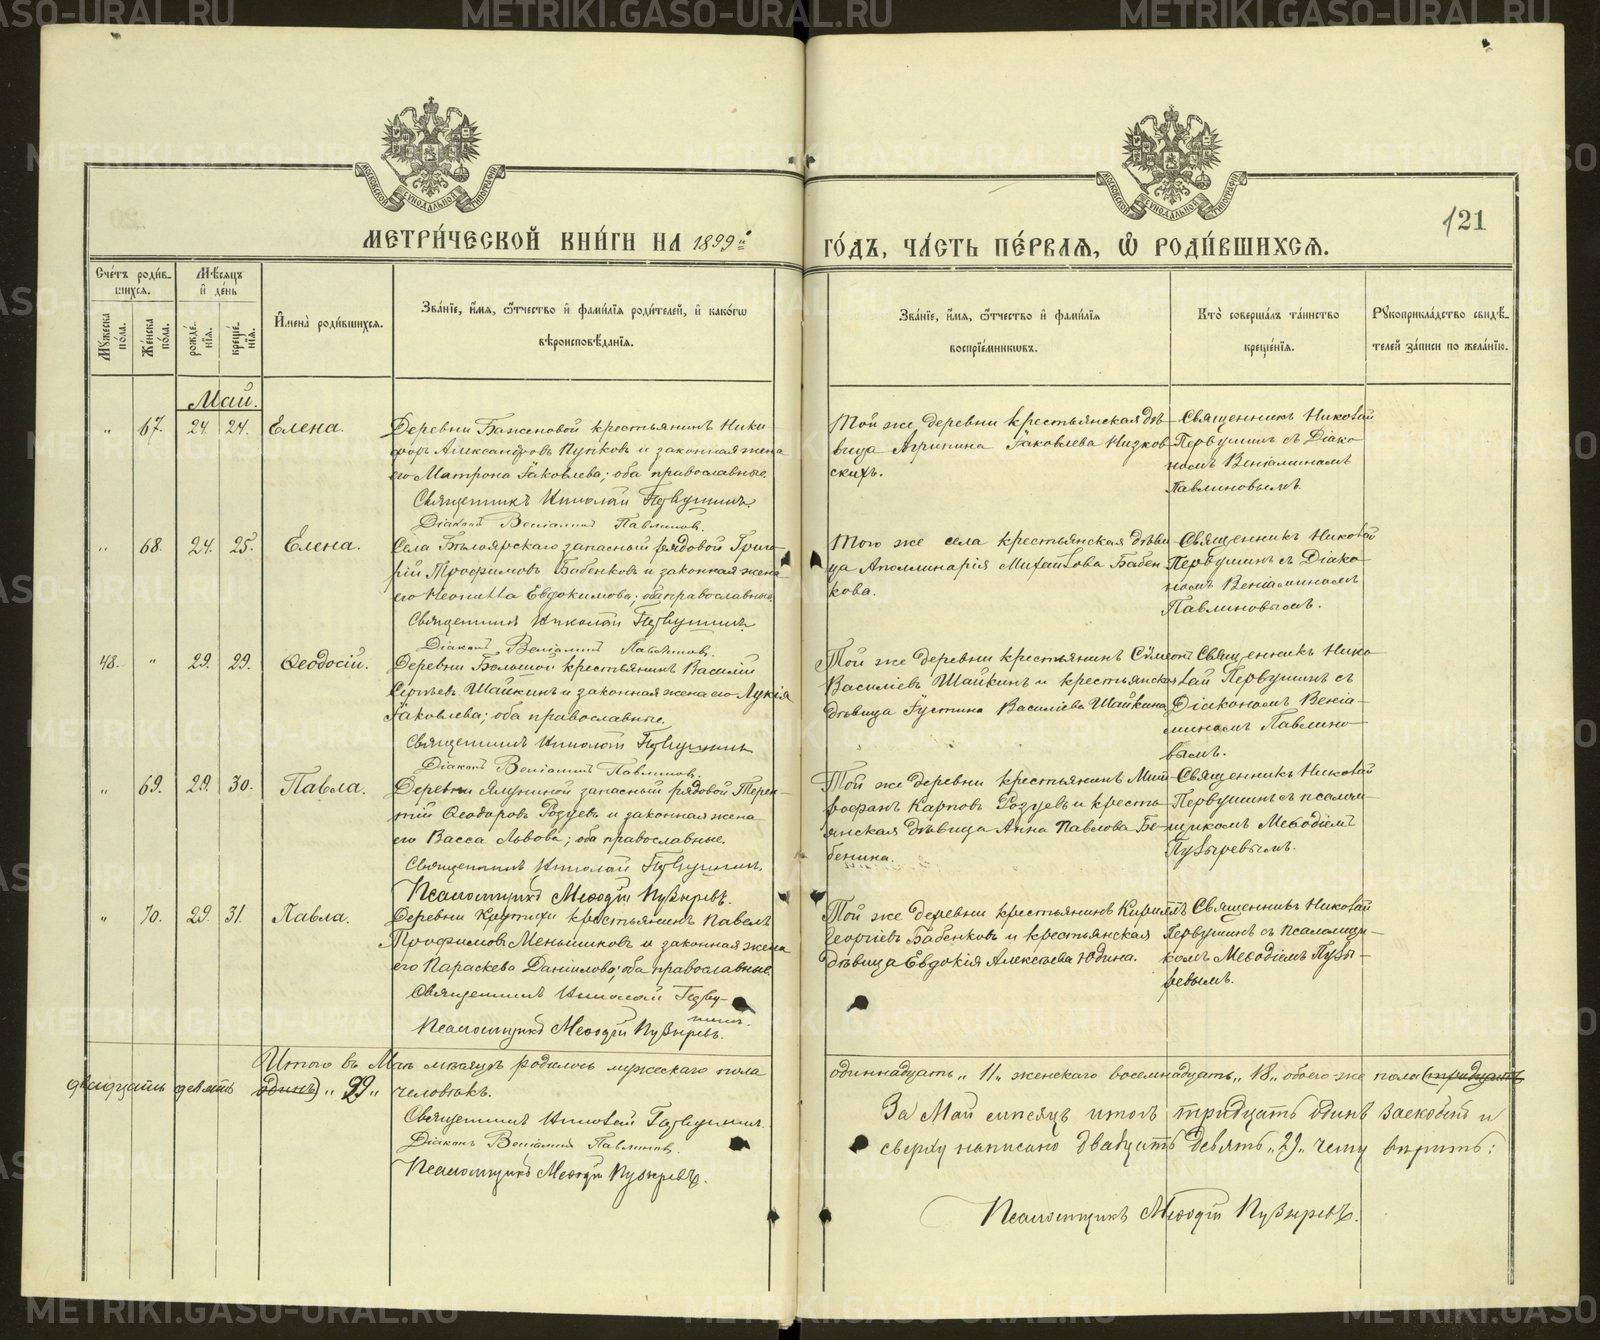 METRIKI.GASO-URAL.RU
МЕТРИ́ЧЕСКОЙ КНИ́ГИ НА 1899й
ГО́ДЪ, ЧА́СТЬ ПЕ́РВАѦ, Ѽ РОДИ́ВШИХСѦ.
121
Сче́тъ роди́в-
шихсѧ.
Мѣ́сѧцъ
и҆ де́нь
Мꙋ́жеска по́ла.
Же́нска по́ла.
рожде́нїѧ.
креще́нїѧ.
И҆мена̀ роди́вшихсѧ.
Зва́нїе, и҆́мѧ, ѻ҆́тчество и҆ фами́лїѧ роди́телей, и҆ како́гѡ
вѣроисповѣ́данїѧ.
Зва́нїе, и҆́мѧ, ѻ҆́тчество и҆ фами́лїѧ
воспрїе́мникѡвъ.
Кто̀ соверша́лъ та́инство
креще́нїѧ.
Рꙋкоприкла́дство свидѣ́-
телей за́писи по жела́нїю.
Май.
„ 67. 24. 24. Елена.
Деревни Баженовой крестьянинъ Ники-
форъ Александровъ Пупковъ и законная жена
его Матрона Іаковлева; оба православные.
Священникъ Николай Первушинъ
Діаконъ Веніаминъ Павлиновъ.
Той же деревни крестьянская дѣ-
вица Агрипина Іаковлева Низков-
скихъ.
Священникъ Николай
Первушинъ съ Діако-
номъ Веніаминомъ
Павлиновымъ.
„ 68. 24. 25. Елена.
Села Бѣлоярскаго запасный рядовой Григо-
рій Трофимовъ Бабенковъ и законная жена
его Неонилла Евдокимова; оба православные.
Священникъ Николай Первушинъ
Діаконъ Веніаминъ Павлиновъ.
Того же села крестьянская дѣви-
ца Аполлинарія Михайлова Бабен-
кова.
Священникъ Николай
Первушинъ съ Діако-
номъ Веніаминомъ
Павлиновымъ.
48. „ 29. 29. Ѳеодосій.
Деревни Большой крестьянинъ Василій
Сергѣевъ Шайкинъ и законная жена его Лукія
Іаковлева; оба православные.
Священникъ Николай Первушинъ
Діаконъ Веніаминъ Павлиновъ.
Той же деревни крестьянинъ Сѵмеонъ
Василіевъ Шайкинъ и крестьянская
дѣвица Іустина Василіева Шайкина.
Священникъ Нико-
лай Первушинъ съ
Діакономъ Веніа-
миномъ Павлино-
вымъ.
„ 69. 29. 30. Павла.
Деревни запасный рядовой Терен-
тій Ѳеодоровъ Розуевъ и законная жена
его Васса Львова; оба православные.
Священникъ Николай Первушинъ.
Псаломщикъ Меѳодій Пузыревъ.
Той же деревни крестьянинъ Мит-
рофанъ Карповъ Розуевъ и кресть-
янская дѣвица Анна Павлова Бе-
бенина.
Священникъ Николай
Первушинъ съ псалом-
щикомъ Меѳодіемъ
Пузыревымъ.
„ 70. 29. 31. Павла.
Деревни Крутихи крестьянинъ Павелъ
Трофимовъ Меньшиковъ и законная жена
его Параскева Даніилова; оба православные.
Священникъ Николай Перву-
шинъ.
Псаломщикъ Меѳодій Пузыревъ.
Той же деревни крестьянинъ Кириллъ
Георгіевъ Бабенковъ и крестьянская
дѣвица Евдокія Алексѣева Юдина.
Священникъ Николай
Первушинъ съ Псаломщи-
комъ Меѳодіемъ Пузы-
ревымъ.
Итого въ Маѣ мѣсяцѣ родилось мужескаго пола
одиннадцать „11„ женскаго восемнадцать „18„ обоего же пола (тридцать
двадцать девять одинъ) „29„ человѣкъ.
Священникъ Николай Первушинъ.
Діаконъ Веніаминъ Павлиновъ.
Псаломщикъ Меѳодій Пузыревъ.
За Май мѣсяцъ итогъ тридцать одинъ заскоблено и
сверху написано двадцать девять „29„ чему вѣрить:
Псаломщикъ Меѳодій Пузыревъ.